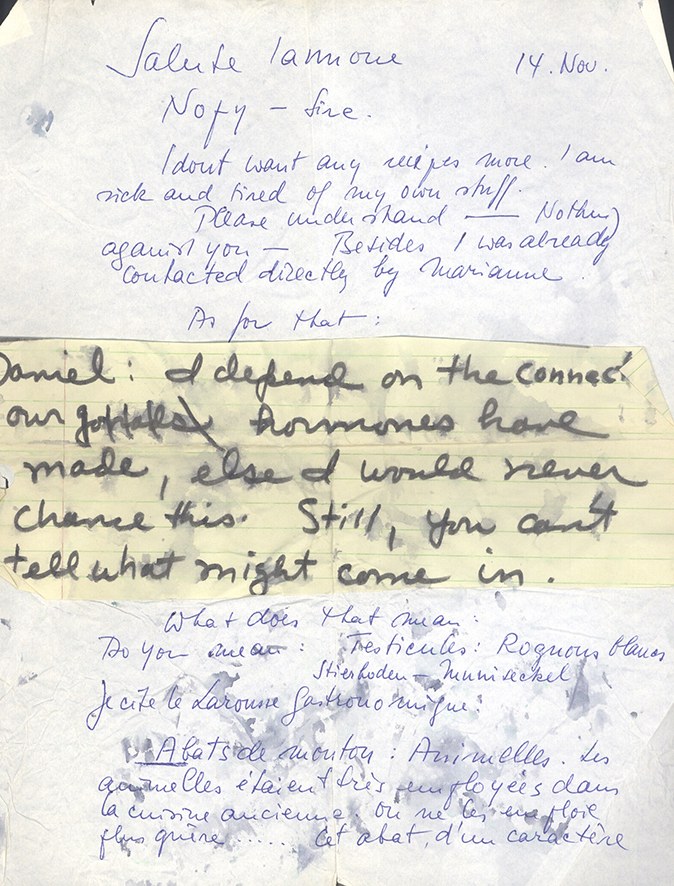 Salute Iannone 14. Nov.
Nofy – Sire.
I dont want any recipes more. I am
sick and tired of my own stuff.
Please understand — Nothing
against you — Besides I was already
contacted directly by Marianne.
As for that:
Daniel: I depend on the connec.
our hormones have
made, else I would never
chance this. Still, you can't
tell what might come in.
What does that mean:
Do you mean: Testicules: Rognons blancs
Stierhoden – Muniseckel
Je cite le Larousse Gastronomique:
Abats de mouton: Animelles. Les
animelles étaient très employées dans
la cuisine ancienne. On ne les emploie
plus guère ...... Cet abat, d'un caractère